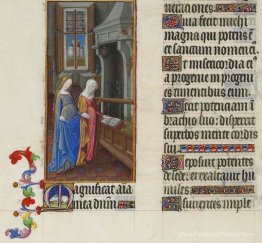 agnificat aīa
mea dūm
nerationes
Quia fecit michi
magna qui potens ē
et sanctum nomen ei'
Et misericordia ei' a
progenie in progenies
timentibus eum
Fecit potenciam in
brachio suo: dispersit
superbos mente cordis
sui
Deposuit potentes
de sede: et exaltavit hu
miles
Esurientes imple